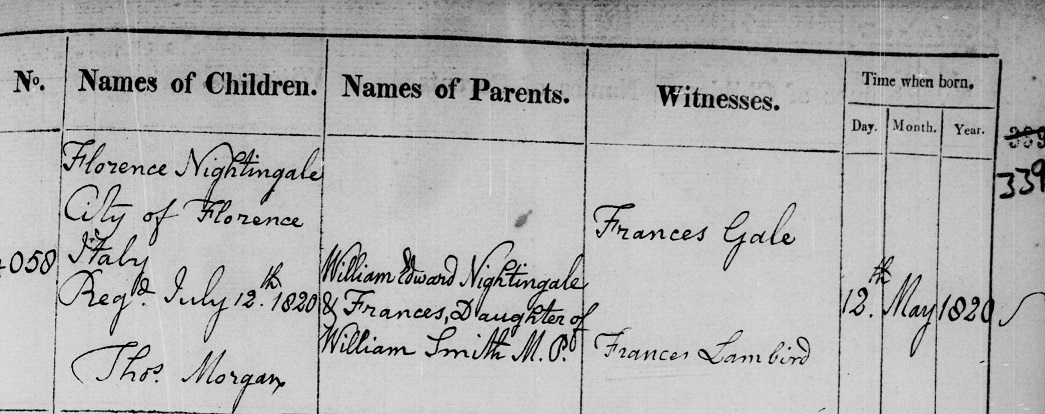 No. Names of Children. Names of Parents. Witnesses. Time when born.
Day. Month. Year.
339
Florence Nightingale
City of Florence
Italy
Regd. July 12.th 1820
Thos. Morgan
4058
William Edward Nightingale
& Frances, Daughter of
William Smith M.P.
Frances Gale
Frances Lambird
12.th May 1820